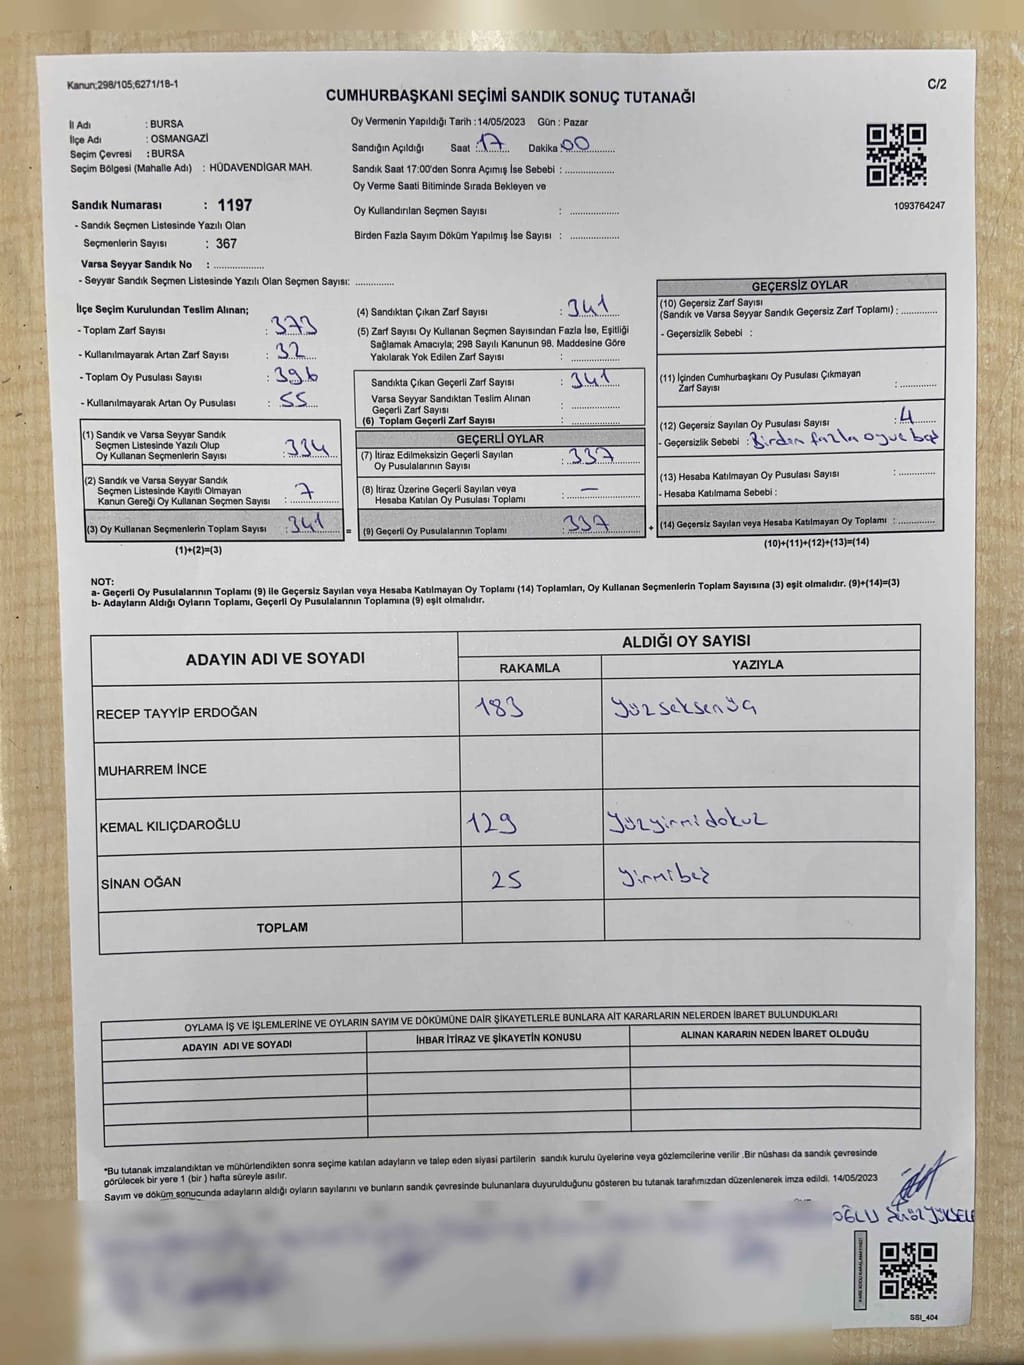 Kanun;298/105;6271/18-1
C/2
CUMHURBAŞKANI SEÇİMİ SANDIK SONUÇ TUTANAĞI
İl Adı : BURSA
İlçe Adı : OSMANGAZİ
Seçim Çevresi : BURSA
Seçim Bölgesi (Mahalle Adı) : HÜDAVENDİGAR MAH.
Sandık Numarası : 1197
- Sandık Seçmen Listesinde Yazılı Olan
Seçmenlerin Sayısı : 367
Varsa Seyyar Sandık No : ................
- Seyyar Sandık Seçmen Listesinde Yazılı Olan Seçmen Sayısı: ............
Oy Vermenin Yapıldığı Tarih :14/05/2023 Gün : Pazar
Sandığın Açıldığı Saat :17 Dakika:00
Sandık Saat 17:00'den Sonra Açımış İse Sebebi : ...............
Oy Verme Saati Bitiminde Sırada Bekleyen ve
Oy Kullandırılan Seçmen Sayısı : ...............
Birden Fazla Sayım Döküm Yapılmış İse Sayısı : ...............
1093764247
İlçe Seçim Kurulundan Teslim Alınan;
- Toplam Zarf Sayısı : 373
- Kullanılmayarak Artan Zarf Sayısı : 32
- Toplam Oy Pusulası Sayısı : 396
- Kullanılmayarak Artan Oy Pusulası : 55
(1) Sandık ve Varsa Seyyar Sandık
Seçmen Listesinde Yazılı Olup
Oy Kullanan Seçmenlerin Sayısı : 334
(2) Sandık ve Varsa Seyyar Sandık
Seçmen Listesinde Kayıtlı Olmayan
Kanun Gereği Oy Kullanan Seçmen Sayısı : 7
(3) Oy Kullanan Seçmenlerin Toplam Sayısı : 341 =
(1)+(2)=(3)
(4) Sandıktan Çıkan Zarf Sayısı : 341
(5) Zarf Sayısı Oy Kullanan Seçmen Sayısından Fazla İse, Eşitliği
Sağlamak Amacıyla; 298 Sayılı Kanunun 98. Maddesine Göre
Yakılarak Yok Edilen Zarf Sayısı : ...............
Sandıkta Çıkan Geçerli Zarf Sayısı : 341
Varsa Seyyar Sandıktan Teslim Alınan
Geçerli Zarf Sayısı : ...............
(6) Toplam Geçerli Zarf Sayısı : ...............
GEÇERLİ OYLAR
(7) İtiraz Edilmeksizin Geçerli Sayılan
Oy Pusulalarının Sayısı : 337
(8) İtiraz Üzerine Geçerli Sayılan veya
Hesaba Katılan Oy Pusulası Toplamı : —
(9) Geçerli Oy Pusulalarının Toplamı : 337 +
GEÇERSİZ OYLAR
(10) Geçersiz Zarf Sayısı
(Sandık ve Varsa Seyyar Sandık Geçersiz Zarf Toplamı) : ............
- Geçersizlik Sebebi :
(11) İçinden Cumhurbaşkanı Oy Pusulası Çıkmayan
Zarf Sayısı : ............
(12) Geçersiz Sayılan Oy Pusulası Sayısı : 4
- Geçersizlik Sebebi : Birden fazla oyve
(13) Hesaba Katılmayan Oy Pusulası Sayısı : ............
- Hesaba Katılmama Sebebi :
(14) Geçersiz Sayılan veya Hesaba Katılmayan Oy Toplamı : ............
(10)+(11)+(12)+(13)=(14)
NOT:
a- Geçerli Oy Pusulalarının Toplamı (9) ile Geçersiz Sayılan veya Hesaba Katılmayan Oy Toplamı (14) Toplamları, Oy Kullanan Seçmenlerin Toplam Sayısına (3) eşit olmalıdır. (9)+(14)=(3)
b- Adayların Aldığı Oyların Toplamı, Geçerli Oy Pusulalarının Toplamına (9) eşit olmalıdır.
ADAYIN ADI VE SOYADI
ALDIĞI OY SAYISI
RAKAMLA YAZIYLA
RECEP TAYYİP ERDOĞAN 183 Yüzseksenüç
MUHARREM İNCE
KEMAL KILIÇDAROĞLU 129 Yüzyirmidokuz
SİNAN OĞAN 25 Yirmibeş
TOPLAM
OYLAMA İŞ VE İŞLEMLERİNE VE OYLARIN SAYIM VE DÖKÜMÜNE DAİR ŞİKAYETLERLE BUNLARA AİT KARARLARIN NELERDEN İBARET BULUNDUKLARI
ADAYIN ADI VE SOYADI İHBAR İTİRAZ VE ŞİKAYETİN KONUSU ALINAN KARARIN NEDEN İBARET OLDUĞU
*Bu tutanak imzalandıktan ve mühürlendikten sonra seçime katılan adayların ve talep eden siyasi partilerin sandık kurulu üyelerine veya gözlemcilerine verilir .Bir nüshası da sandık çevresinde
görülecek bir yere 1 (bir ) hafta süreyle asılır.
Sayım ve döküm sonucunda adayların aldığı oyların sayılarını ve bunların sandık çevresinde bulunanlara duyurulduğunu gösteren bu tutanak tarafımızdan düzenlenerek imza edildi. 14/05/2023
OĞLU
SSI_404